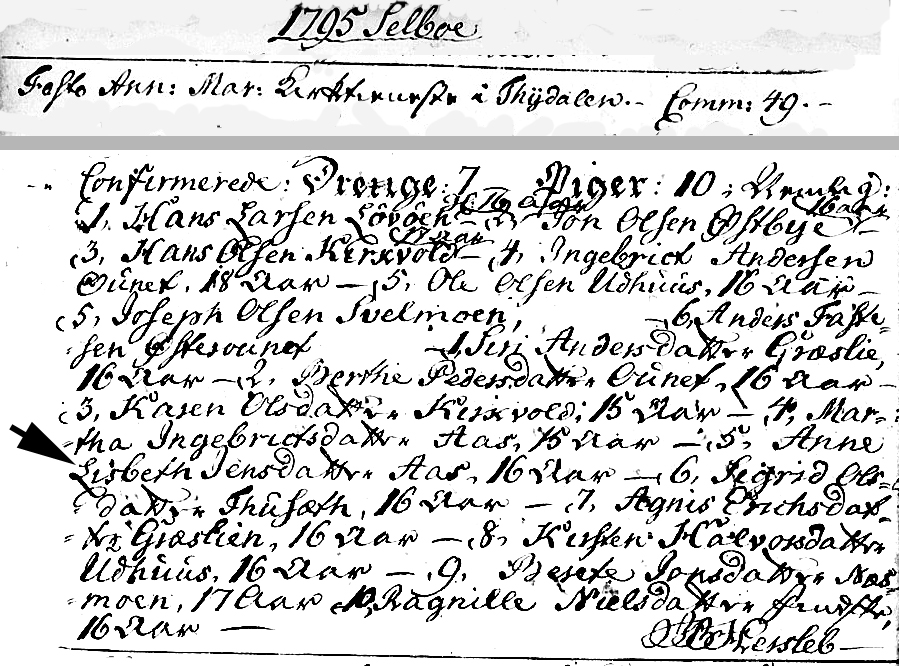 1795 Selboe
Festo Ann: Mar: Kirketieneste i Thydalen. - Comm: 49. -
Confirmerede: Drenge: 7 Piger: 10;
1, Hans Larsen Løvøen 16 aar 2, Jon Olsen Østbye 16 aar
3, Hans Olsen Kirkvold 17 aar - 4, Ingebrict Andersen
Øunet, 18 Aar - 5, Ole Olsen Udhuus, 16 Aar -
5, Joseph Olsen Svelmoen, - 6, Anders Faste-
-sen Østerounet - 1, Siri Andersdatter Græslie,
16 Aar - 2, Berthe Pedersdatter Ounet, 16 Aar -
3, Karen Olsdatter Kirkvold, 15 Aar - 4, Mar-
-tha Ingebrictsdatter Aas, 15 Aar - 5, Anne
Lisbeth Jensdatter Aas, 16 Aar - 6, Sigrid Ols-
-datter Thusæth, 16 Aar - 7, Agnis Erichsdat-
-ter Græslien, 16 Aar - 8, Kirsten Halvorsdatter
Udhuus, 16 Aar - 9, Berete Jonsdatter Næs-
-moen, 17 Aar 10, Ragnille Nielsdatter
16 Aar - Hersleb